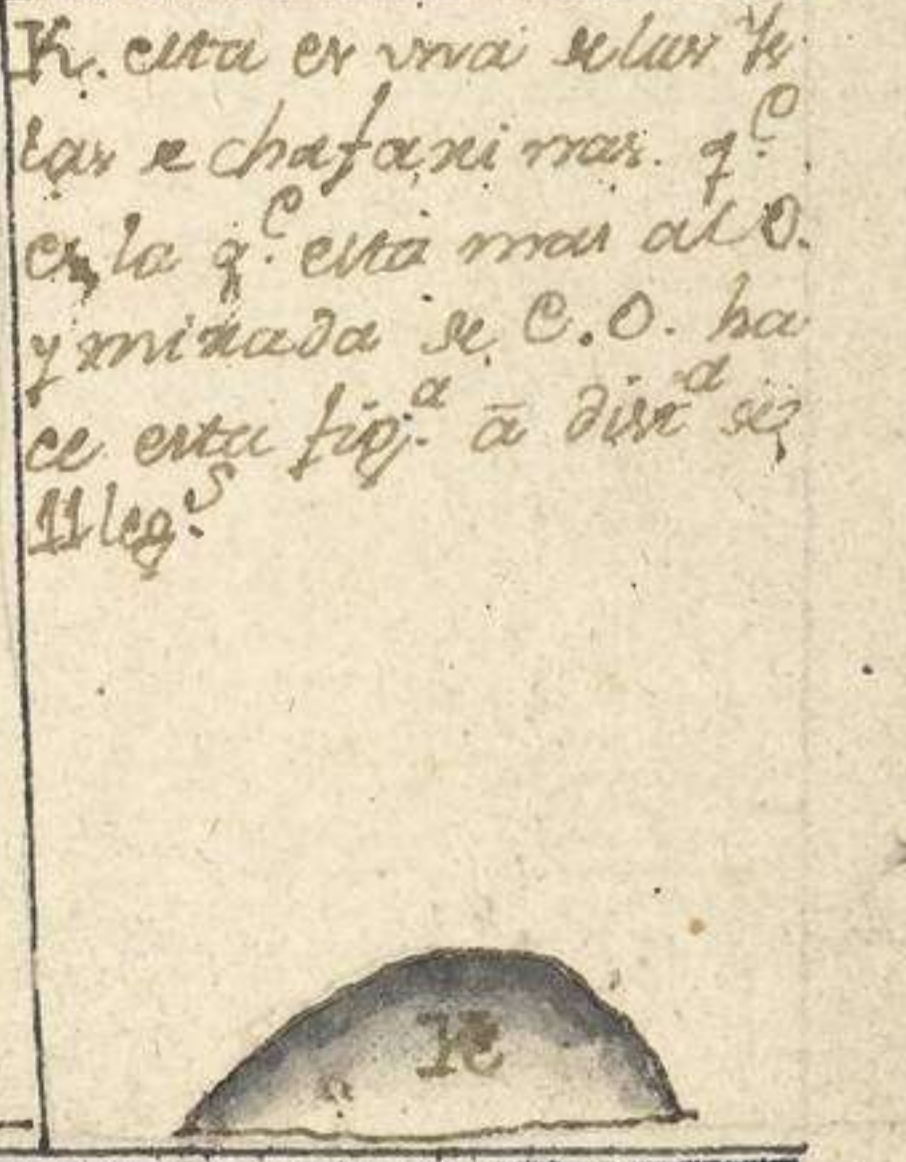 K. esta es vna de las Ys
las de chafarinas. q.^e
es, la q.^e esta mas al O.
y mirada de E.O. ha
ce esta fig.^a â dist^a de
11 leg.^s
K